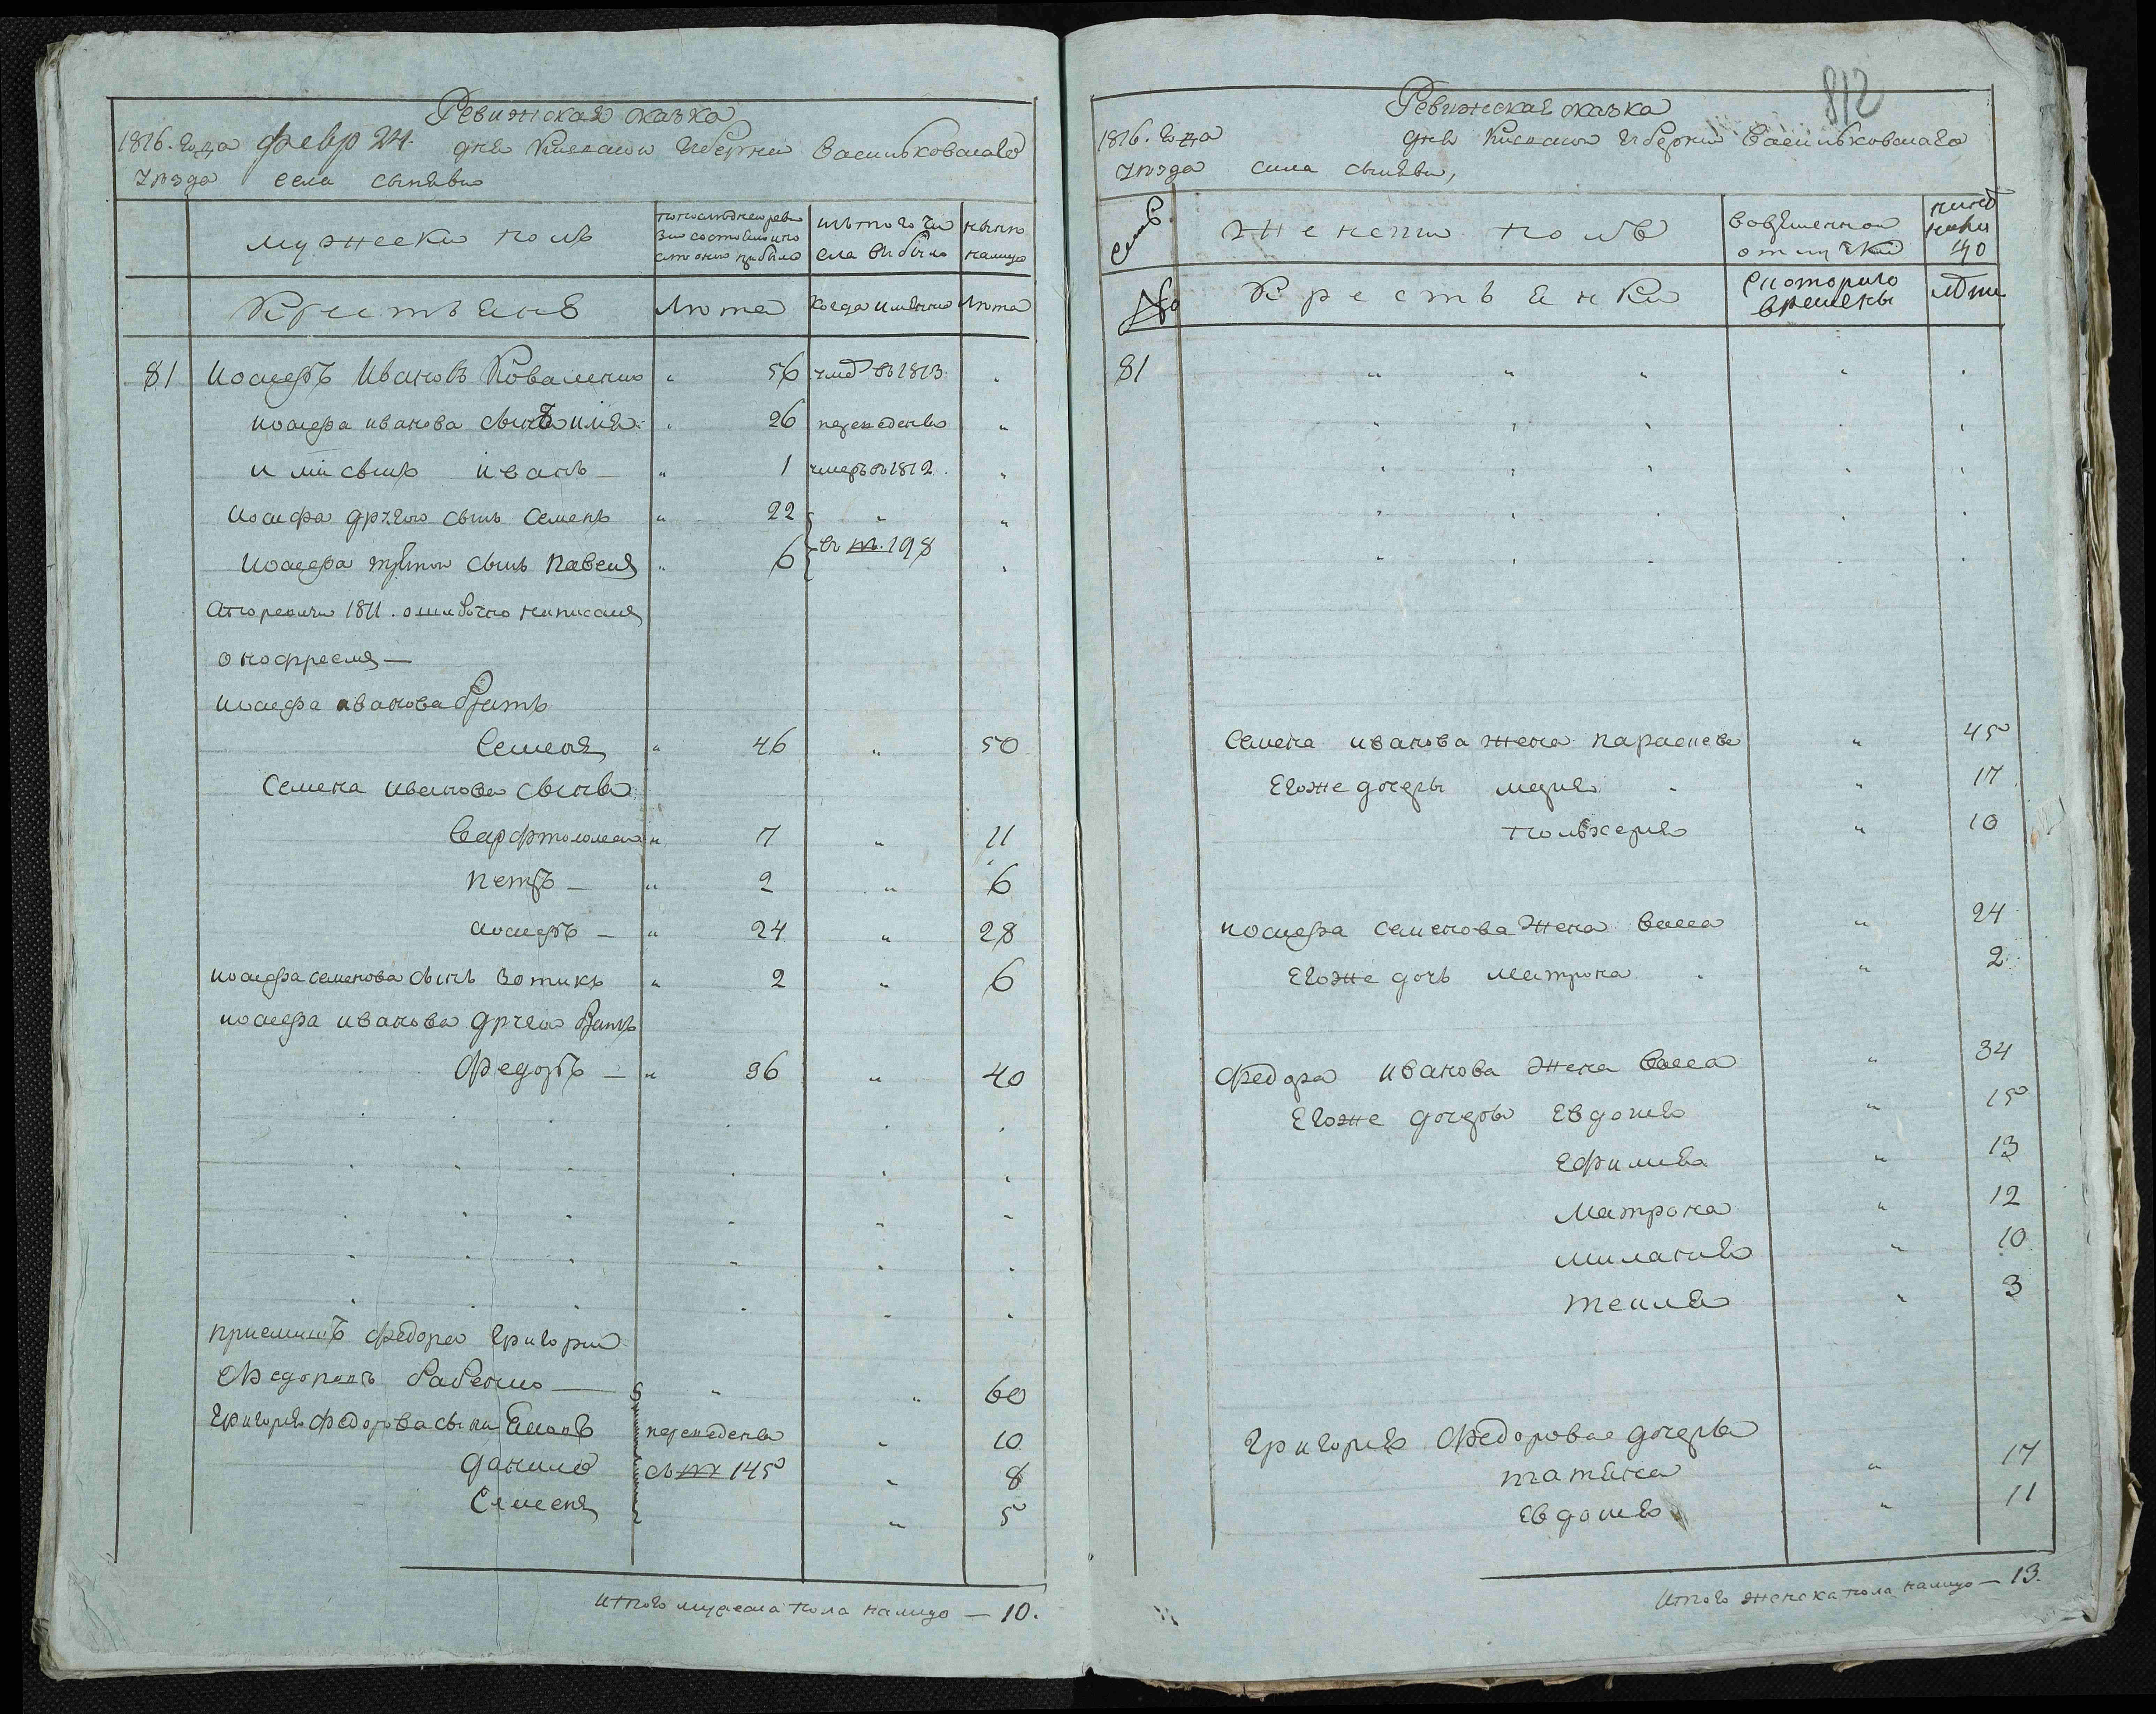 Ревижская сказка
1816. года февр 24. дня Киевской Губернии Васильковскаго
уезда села сынявы
мужески полъ
по последней ревизии состояло и после оной прибыло
изъ того числа выбыло
ныне налицо
Крестьянъ
Лета
Когда именно
Лета
81 Иосифъ Ивановъ Коваленко " 56 умре въ 1813 "
иосифа иванова сынъ илия " 26 переведены "
илии сынъ иванъ — " 1 умеръ въ 1812. "
иосифа другой сынъ Семенъ " 22 " "
Иосифа третой сынъ Павелъ " 6 въ № 198 "
а по ревизии 1811. ошибочно написанъ
онофреемъ —
иосифа иванова братъ
Семенъ " 46 " 50
Семена иванова сыны
Варфтоломей " 7 " 11
Петръ — " 2 " 6
иосифъ — " 24 " 28
иосифа семенова сынъ Зотикъ " 2 " 6
иосифа иванова другой братъ
Федоръ — " 36 " 40
приемышъ Федора Григорий
Федоровъ бабенко — " " 60
Григория Федорова сыны 10
переведены
Данило съ № 145 " 8
Семенъ " 5
Итого мужеска пола налицо — 10.
812
Ревижская сказка
1816. года дня Киевской Губернии Васильковскаго
уезда села сынявы,
женски полъ
во временной отлучке
ныне налицо
№
Крестьянки
Скоторого времены
Лети
81
Семена иванова жена параскева " 45
Егоже дочеры мария " 17
полькерия " 10
иосифа семенова жена васса " 24
Егоже дочь матрона " 2
Федора иванова жена васса " 34
Егоже дочеры Евдокия " 15
Ефимия " 13
Матрона " 12
милания " 10
текля " 3
Григория Федорова дочеры
татияна " 17
Евдокия " 11
Итого женска пола налицо — 13.